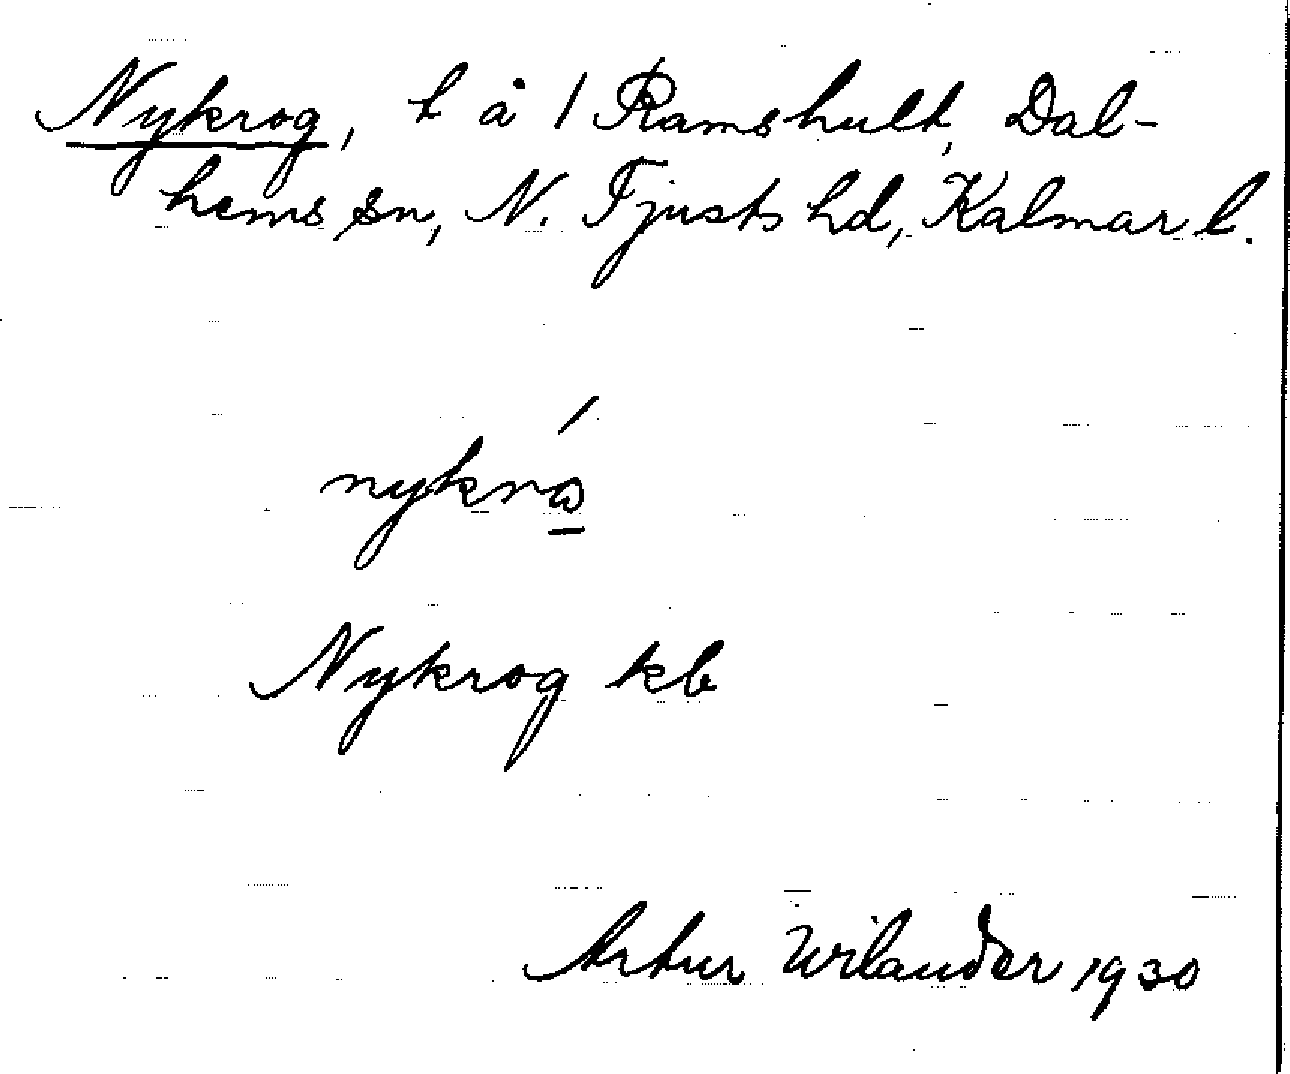 Nykrog, t å 1 Ramshult, Dal-
hems sn, N. Tjusts hd, Kalmar l.
Nykrog kb
Artur Wilander 1930